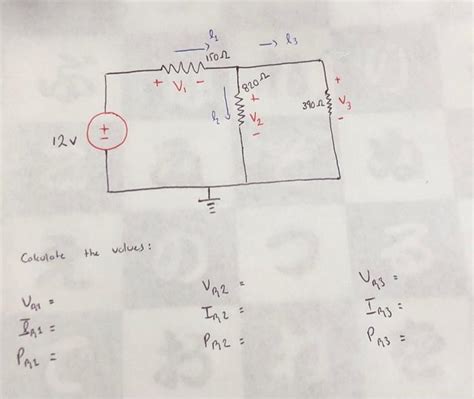 i₁
→ i₃
150Ω
+ V₁ -
820Ω
i₂
+
V₂
-
+
390Ω V₃
-
12V
+
-
Calculate the values:
V_R1 =
I_R1 =
P_R2 =
V_R2 =
I_R2 =
P_R2 =
V_R3 =
I_R3 =
P_R3 =